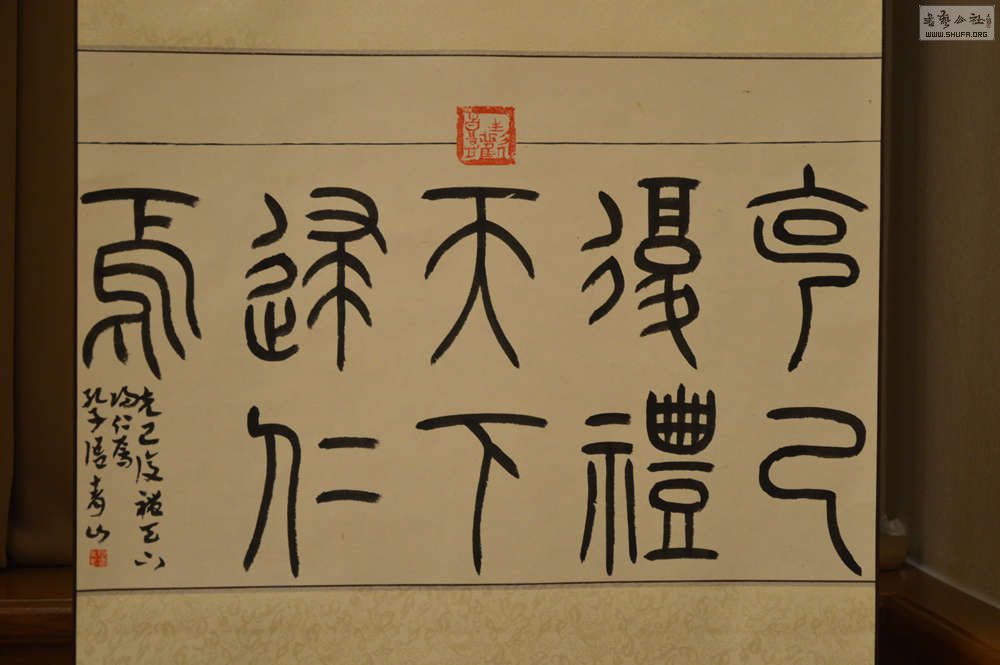 克己
復禮
天下
歸仁
焉
克己复禮天下
歸仁焉
孔子語青山
書藝公社
WWW.SHUFA.ORG